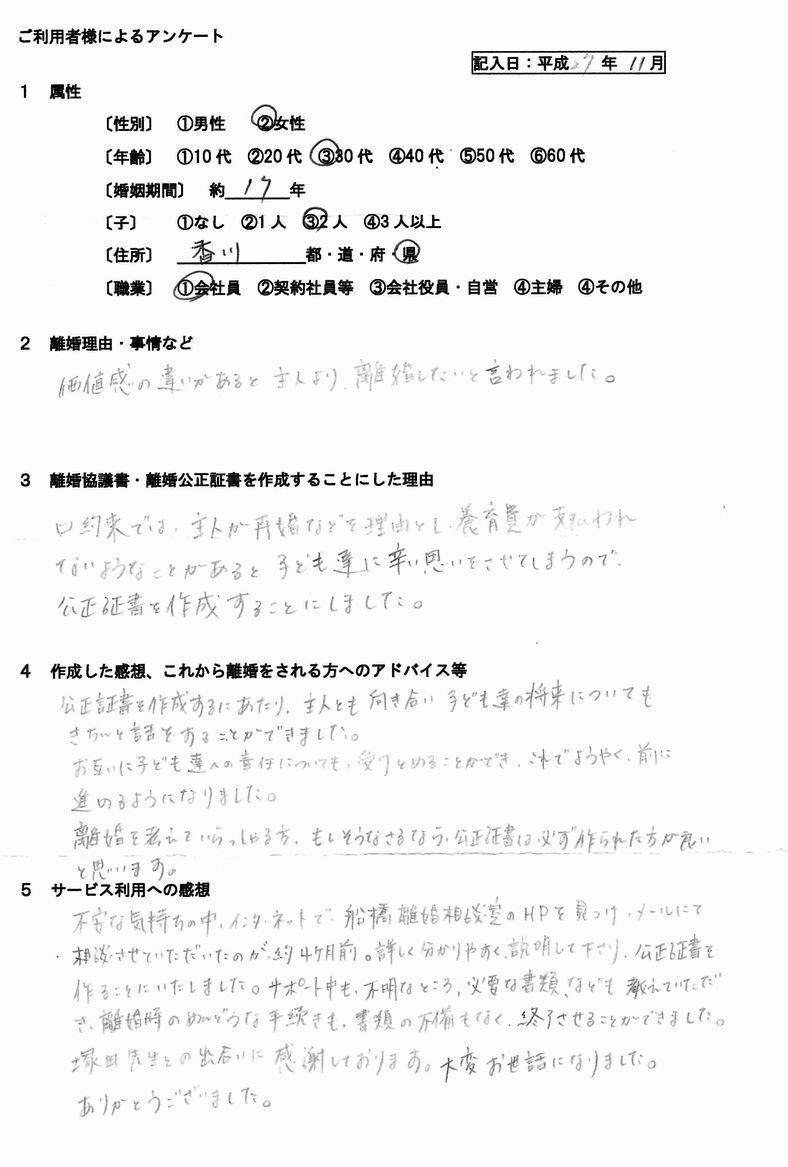 ご利用者様によるアンケート
記入日：平成27年 11月
1 属性
〔性別〕 ①男性 ②女性
〔年齢〕 ①10代 ②20代 ③30代 ④40代 ⑤50代 ⑥60代
〔婚姻期間〕 約 17 年
〔子〕 ①なし ②1人 ③2人 ④3人以上
〔住所〕 香川 都・道・府・県
〔職業〕 ①会社員 ②契約社員等 ③会社役員・自営 ④主婦 ④その他
2 離婚理由・事情など
価値感の違いがあると主人より、離婚したいと言われました。
3 離婚協議書・離婚公正証書を作成することにした理由
口約束では、主人が再婚などを理由とし、養育費が支払われ
ないようなことがあると子ども達に辛い思いをさせてしまうので、
公正証書を作成することにしました。
4 作成した感想、これから離婚をされる方へのアドバイス等
公正証書を作成するにあたり、主人とも向き合い子ども達の将来についても
きちんと話をすることができました。
お互いに子ども達への責任についても、受けとめることができ、これでようやく、前に
進めるようになりました。
離婚を考えていらっしゃる方、もしそうなさるなら、公正証書は必ず作られた方が良い
と思います。
5 サービス利用への感想
不安な気持ちの中、インターネットで、船橋離婚相談室のHPを見つけ、メールにて
相談させていただいたのが、約4ヶ月前。詳しく分かりやすく、説明して下さり、公正証書を
作ることにいたしました。サポート中も、不明なところ、必要な書類、なども教えていただ
き、離婚時のめんどうな手続きも、書類の不備もなく、終了させることができました。
塚田先生との出会いに感謝しております。大変お世話になりました。
ありがとうございました。